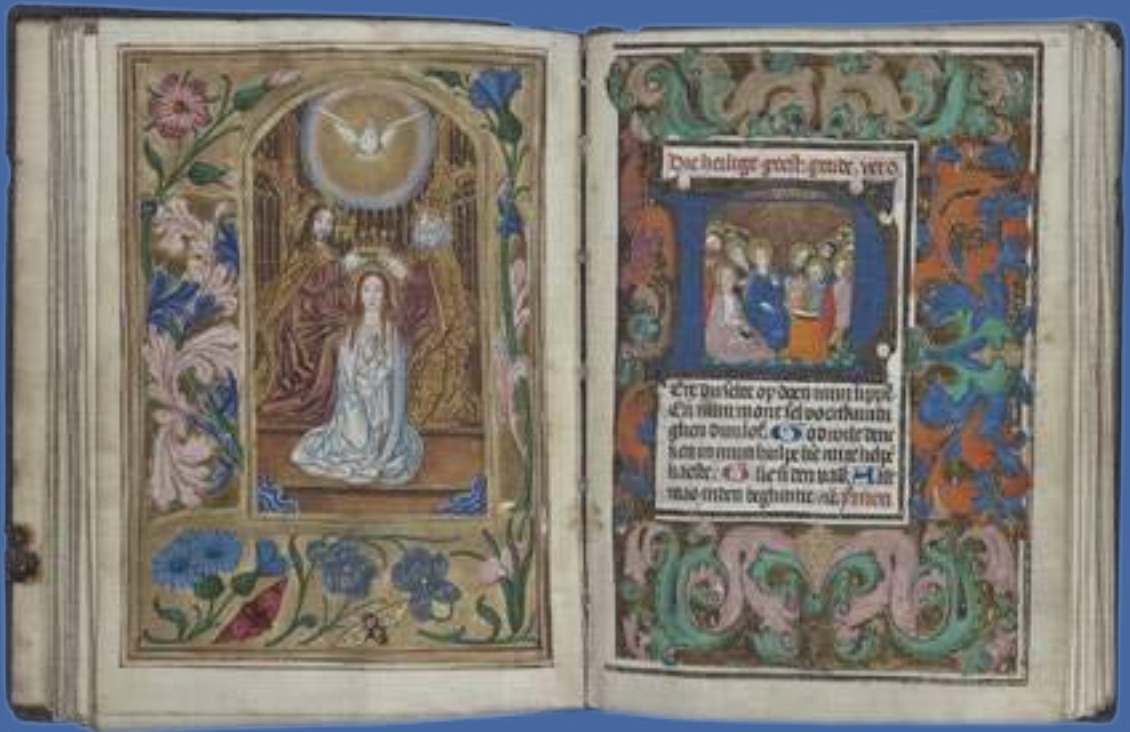 Die heilige geest getide. vers
HEre du selte op doen mijn lippe.
En mijn mont sel voertkundi
ghen dijn lof. God wilt denc
ken in mijn hulpe mi te helpe
haeste. si den vad.
was inden beghinne ymen